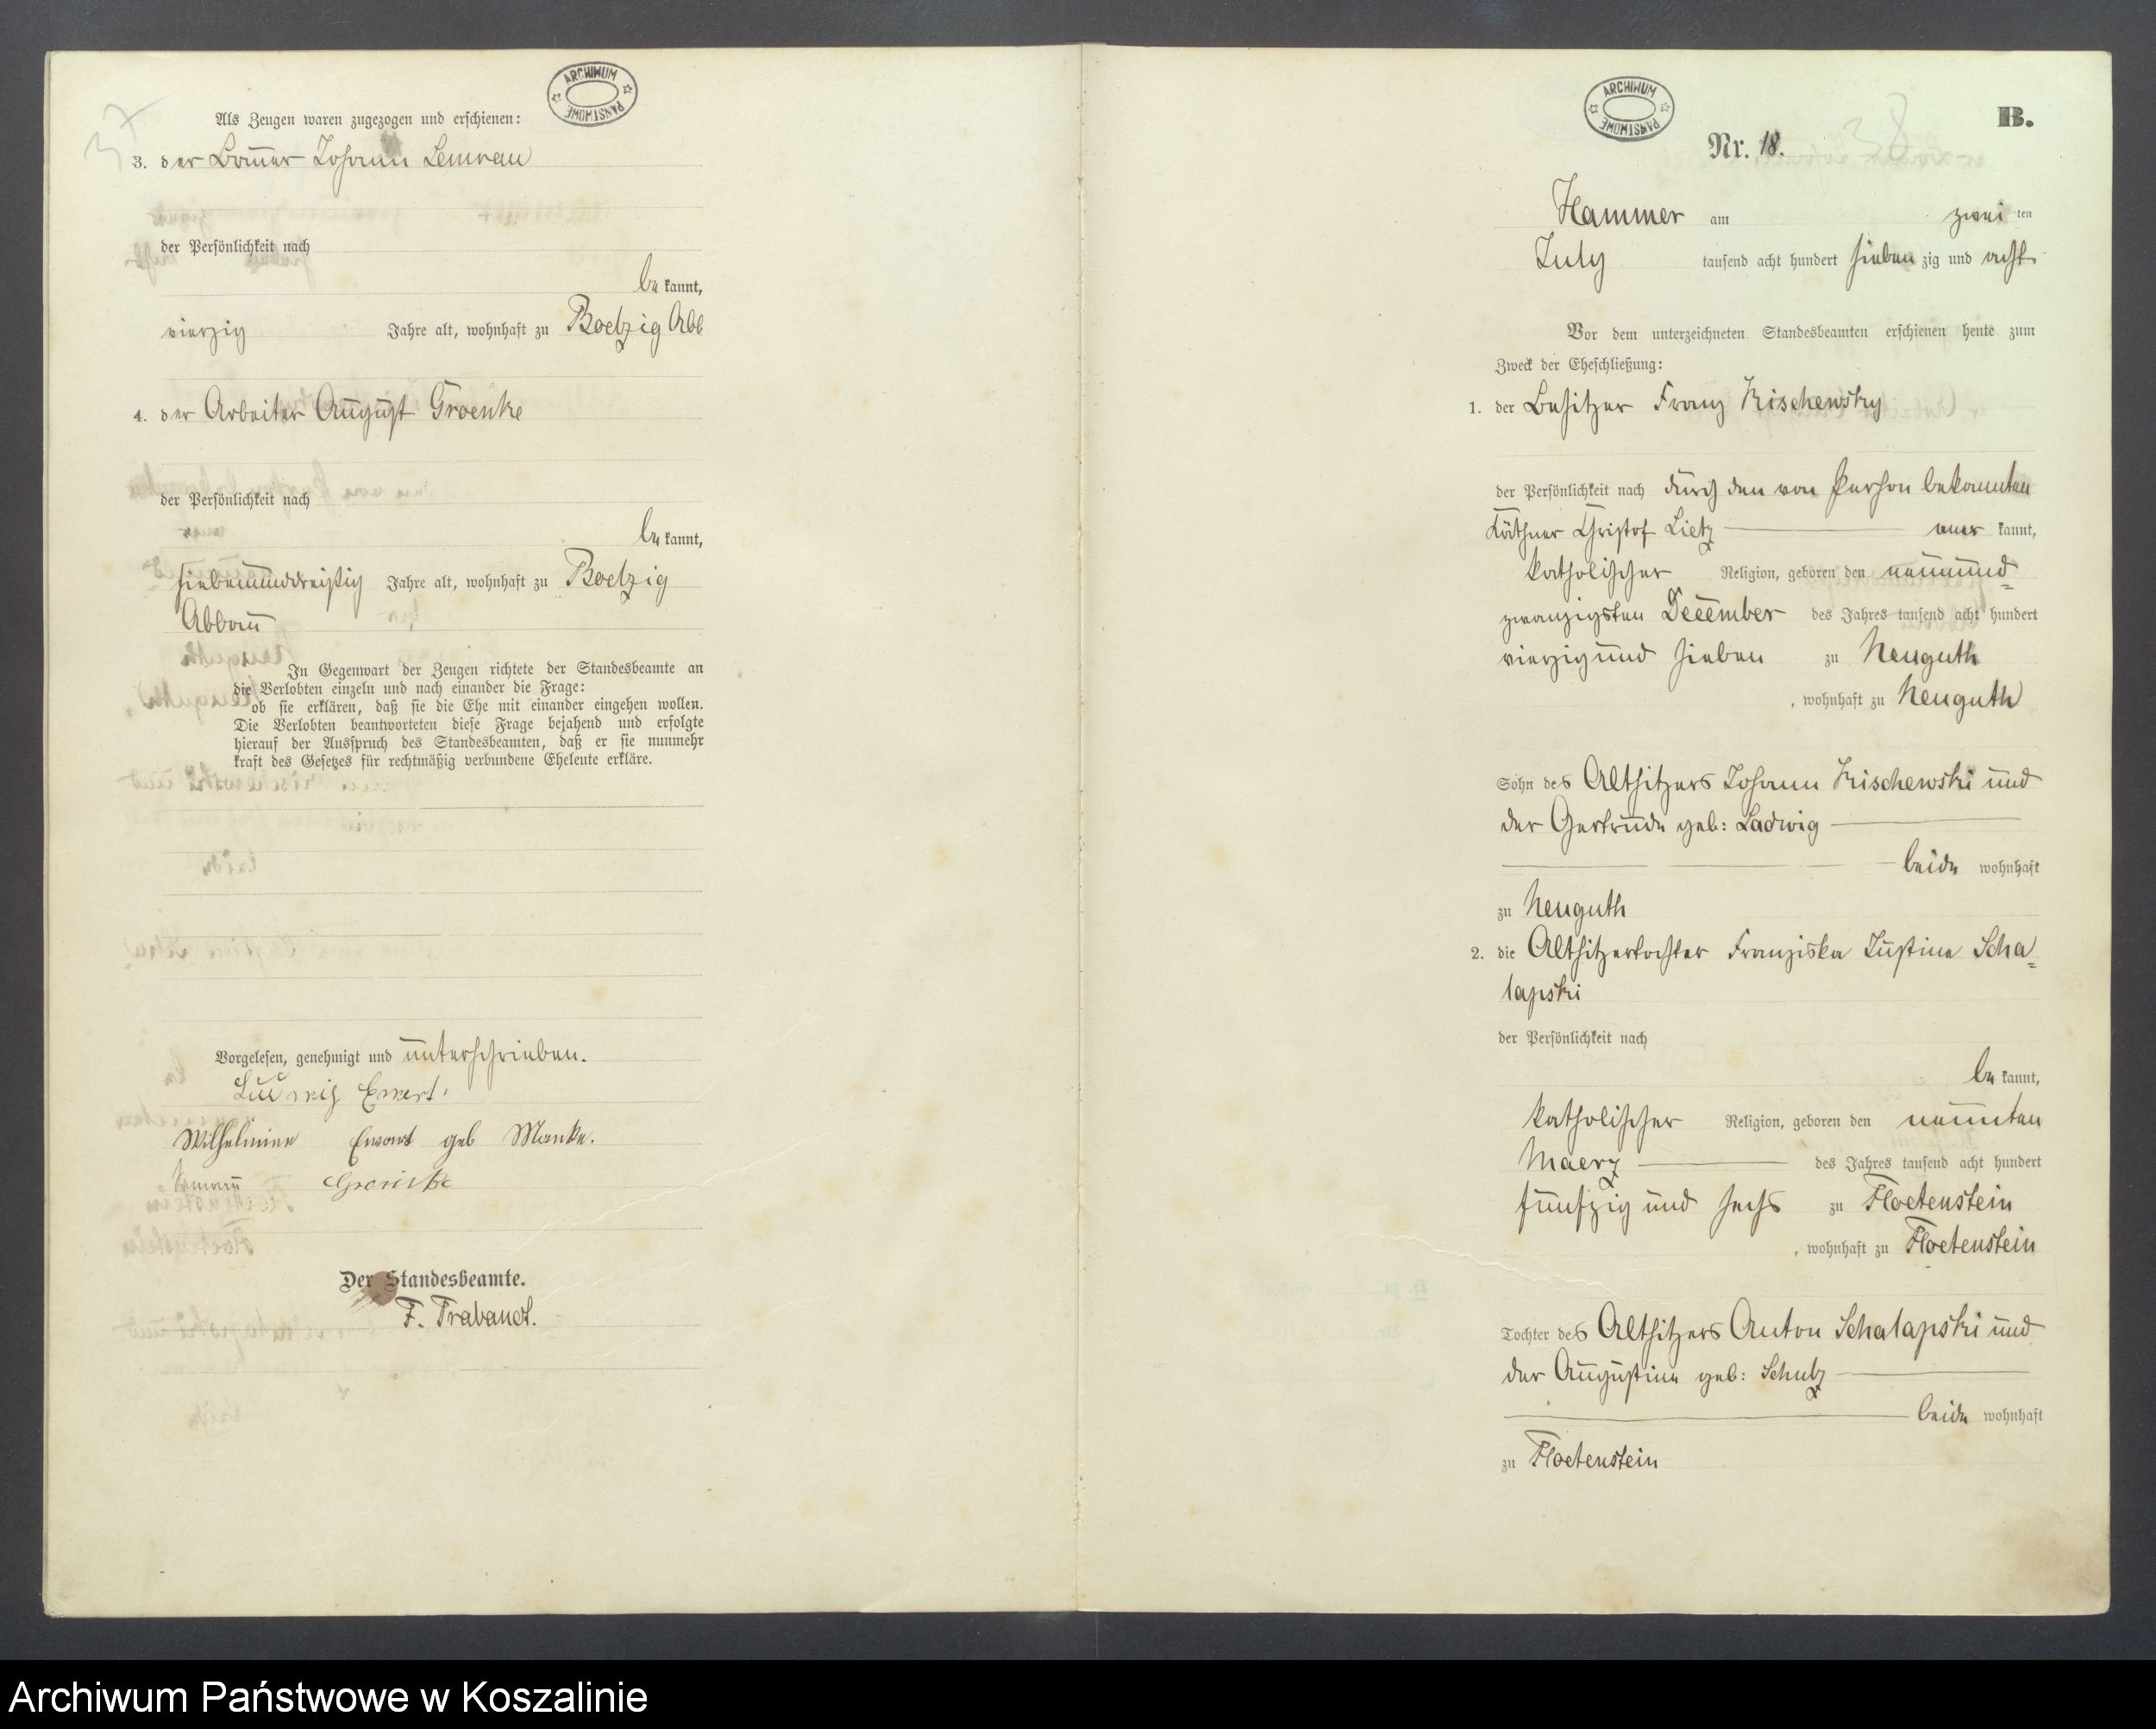 37
ARCHIWUM PAŃSTWOWE
Als Zeugen waren zugezogen und erschienen:
3. der Bauer Johann
der Persönlichkeit nach
be kannt,
vierzig Jahre alt, wohnhaft zu Boetzig Abb
4. der Arbeiter August Groenke
der Persönlichkeit nach
be kannt,
siebenunddreißig Jahre alt, wohnhaft zu Boetzig
Abbau
In Gegenwart der Zeugen richtete der Standesbeamte an
die Verlobten einzeln und nach einander die Frage:
ob sie erklären, daß sie die Ehe mit einander eingehen wollen.
Die Verlobten beantworteten diese Frage bejahend und erfolgte
hierauf der Ausspruch des Standesbeamten, daß er sie nunmehr
kraft des Gesetzes für rechtmäßig verbundene Eheleute erkläre.
Vorgelesen, genehmigt und unterschrieben.
Ludwig Ewert.
Wilhelmine Ewert geb Manke.
Groenke
Der Standesbeamte.
F. Trabandt.
ARCHIWUM PAŃSTWOWE
38
B.
Nr. 18.
Hammer am zwei ten
July tausend acht hundert sieben zig und acht
Vor dem unterzeichneten Standesbeamten erschienen heute zum
Zweck der Eheschließung:
1. der Besitzer Franz Kischewsky
der Persönlichkeit nach durch den von Person bekannten
Käthner Christof Lietz aner kannt,
katholischer Religion, geboren den neunund=
zwanzigsten December des Jahres tausend acht hundert
vierzig und sieben zu Neuguth
, wohnhaft zu Neuguth
Sohn des Altsitzers Johann Kischewski und
der Gertrude geb: Ladwig
beide wohnhaft
zu Neuguth
2. die Altsitzertochter Franziska Justine Scha=
lapski
der Persönlichkeit nach
be kannt,
katholischer Religion, geboren den neunten
Maerz des Jahres tausend acht hundert
fünfzig und sechs zu Floetenstein
, wohnhaft zu Floetenstein
Tochter des Altsitzers Anton Schalapski und
der Augustine geb: Schulz
beide wohnhaft
zu Floetenstein
Archiwum Państwowe w Koszalinie